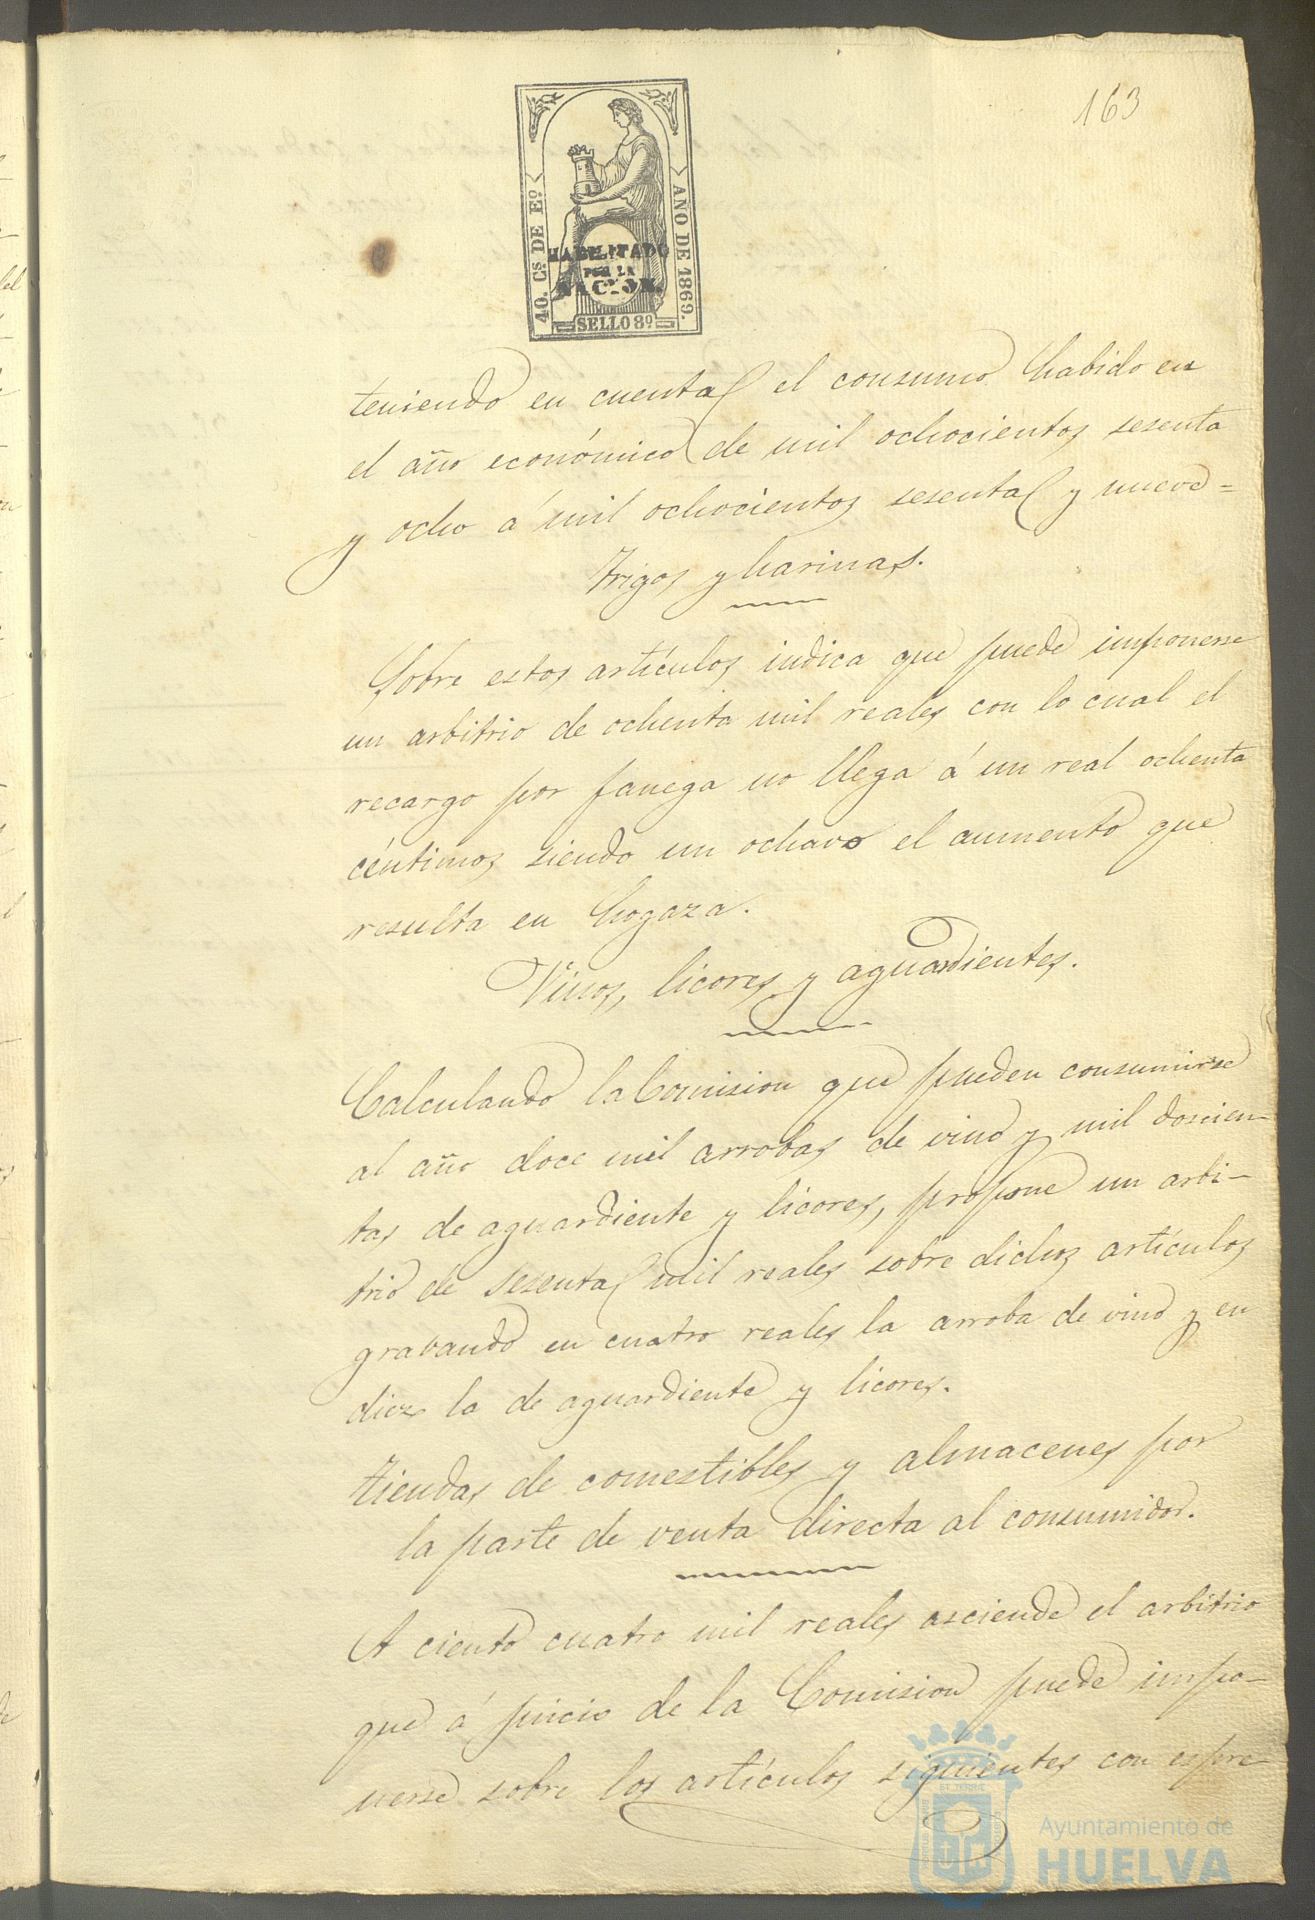 163
40. Cs. DE Eo.
AÑO DE 1869.
HABILITADO
POR LA
NACION.
SELLO 8º
teniendo en cuenta el consumo habido en
el año económico de mil ochocientos sesenta
y ocho á mil ochocientos sesenta y nueve=
Trigos y harinas.
Sobre estos artículos indica que puede imponerse
un arbitrio de ochenta mil reales con lo cual el
recargo por fanega no llega á un real ochenta
céntimos siendo un ochavo el aumento que
resulta en hogaza.
Vinos, licores y aguardientes.
Calculando la Comision que pueden consumirse
al año doce mil arrobas de vino y mil doscien-
tas de aguardiente y licores, propone un arbi-
trio de sesenta mil reales sobre dichos artículos
gravando en cuatro reales la arroba de vino y en
diez la de aguardiente y licores.
Tiendas de comestibles y almacenes por
la parte de venta directa al consumidor.
A ciento cuatro mil reales asciende el arbitrio
que á juicio de la Comision puede impo-
nerse sobre los artículos siguientes con espre-
Ayuntamiento de
HUELVA